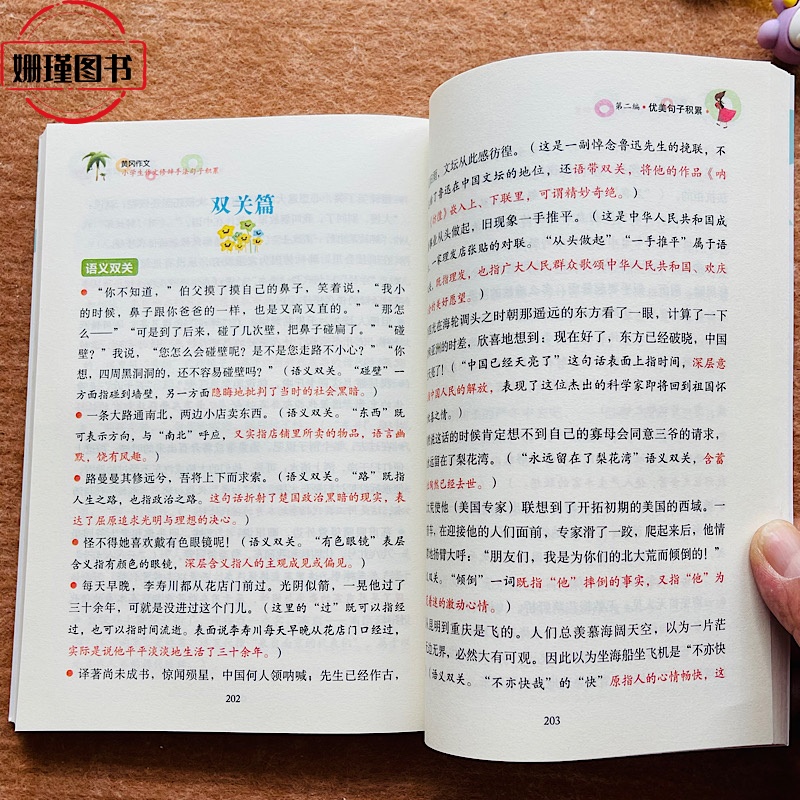 姗瑾图书
黄冈作文
小学生语文修辞手法句子积累
双关篇
语义双关
●“你不知道，”伯父摸了摸自己的鼻子，笑着说，“我小
的时候，鼻子跟你爸爸的一样，也是又高又直的。”“那怎
么——”“可是到了后来，碰了几次壁，把鼻子碰扁了。”“碰
壁？”我说，“您怎么会碰壁呢？是不是您走路不小心？”“你
想，四周黑洞洞的，还不容易碰壁吗？”（语义双关。“碰壁”一
方面指碰到墙壁，另一方面隐晦地批判了当时的社会黑暗。）
●一条大路通南北，两边小店卖东西。（语义双关。“东西”既
可表示方向，与“南北”呼应，又实指店铺里所卖的物品，语言幽
默，饶有风趣。）
●路曼曼其修远兮，吾将上下而求索。（语义双关。“路”既指
人生之路，也指政治之路。这句话折射了楚国政治黑暗的现实，表
达了屈原追求光明与理想的决心。）
●怪不得她喜欢戴有色眼镜呢！（语义双关。“有色眼镜”表层
含义指有颜色的眼镜，深层含义指人的主观成见或偏见。）
●每天早晚，李寿川都从花店门前过。光阴似箭，一晃他过了
三十余年，可就是没进过这个门儿。（这里的“过”既可以指经
过，也可以指时间流逝。表面说李寿川每天早晚从花店门口经过，
实际是说他平平淡淡地生活了三十余年。）
●译著尚未成书，惊闻殒星，中国何人领呐喊；先生已经作古，
202
第二编·优美句子积累
，文坛从此感彷徨。（这是一副悼念鲁迅先生的挽联，不
了鲁迅在中国文坛的地位，还语带双关，将他的作品《呐
》嵌入上、下联里，可谓精妙奇绝。）
从头做起，旧现象一手推平。（这是中华人民共和国成
一家理发店张贴的对联。“从头做起”“一手推平”属于语
既指理发，也指广大人民群众歌颂中华人民共和国、欢庆
美好愿望。）
在海轮调头之时朝那遥远的东方看了一眼，计算了一下
洲的时差，欣喜地想到：现在好了，东方已经破晓，中国
亮了！（“中国已经天亮了”这句话表面上指时间，深层意
中国人民的解放，表现了这位杰出的科学家即将回到祖国怀
之情。）
说这话的时候肯定想不到自己的寡母会同意三爷的请求，
远留在了梨花湾。（“永远留在了梨花湾”语义双关，含蓄
已经去世。）
使他（美国专家）联想到了开拓初期的美国的西域。一
，在迎接他的人们面前，专家滑了一跤，爬起来后，他情
地扬臂大呼：“朋友们，我是为你们的北大荒而倾倒的！”
双关。“倾倒”一词既指“他”摔倒的事实，又指“他”为
的激动心情。）
昆明到重庆是飞的。人们总羡慕海阔天空，以为一片茫
边无界，必然大有可观。因此以为坐海船坐飞机是“不亦快
（语义双关。“不亦快哉”的“快”原指人的心情畅快，这
203